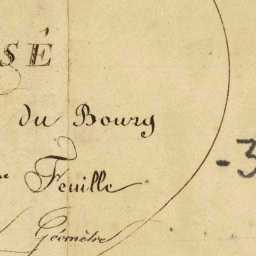 SÉ
du Bourg
-3
Feuille
Géomètre